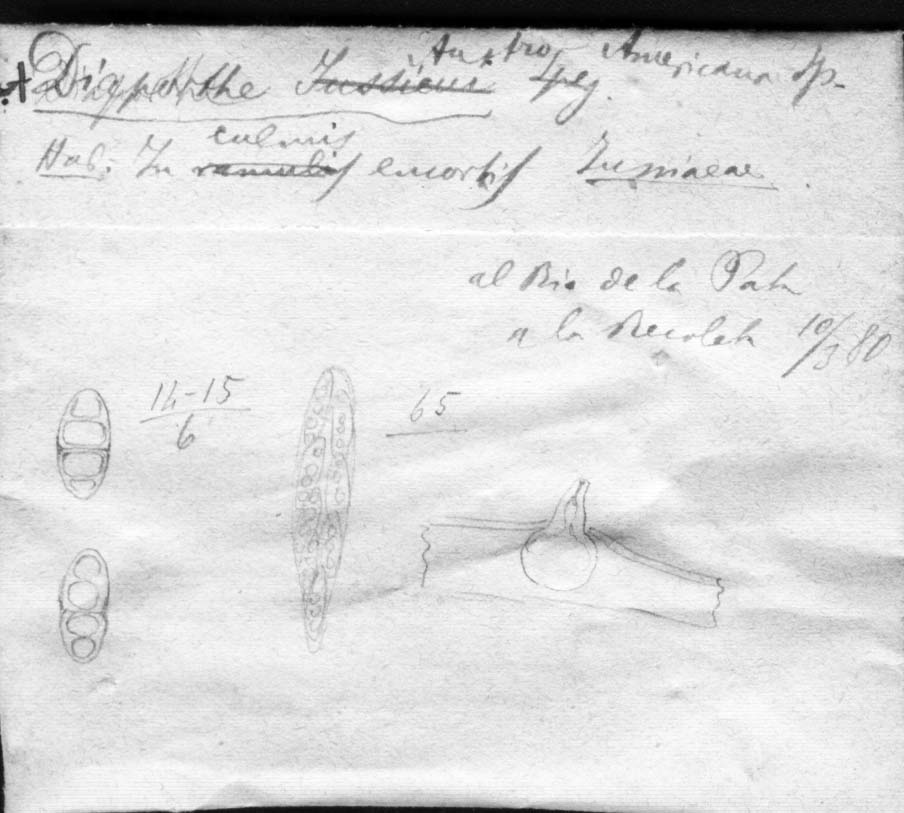 Austro Americana Sp.
+ Diaporthe Jussieui Speg.
culmis
Hab: In ramulis emortis Jussiaeae
al Rio de la Plata
a la Recoleta 10/3 80
14-15 65
6